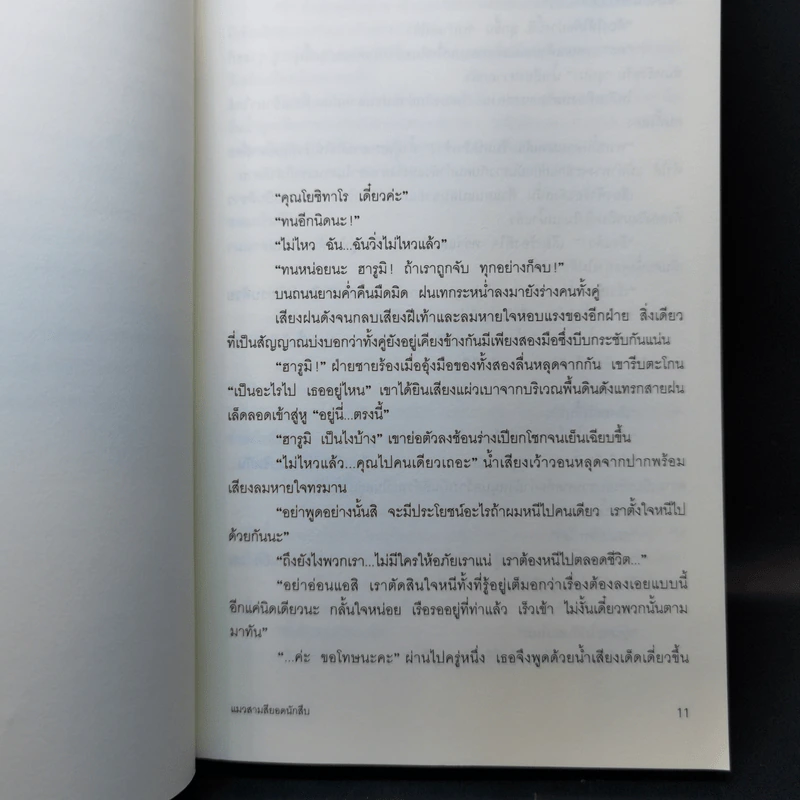 “คุณโยชิทาโร เดี๋ยวค่ะ”
“ทนอีกนิดนะ!”
“ไม่ไหว ฉัน...ฉันวิ่งไม่ไหวแล้ว”
“ทนหน่อยนะ ฮารูมิ! ถ้าเราถูกจับ ทุกอย่างก็จบ!”
บนถนนยามค่ำคืนมืดมิด ฝนเทกระหน่ำลงมายังร่างคนทั้งคู่
เสียงฝนดังจนกลบเสียงฝีเท้าและลมหายใจหอบแรงของอีกฝ่าย สิ่งเดียว
ที่เป็นสัญญาณบ่งบอกว่าทั้งคู่ยังอยู่เคียงข้างกันมีเพียงสองมือซึ่งบีบกระชับกันแน่น
“ฮารูมิ!” ฝ่ายชายร้องเมื่ออุ้งมือของทั้งสองลื่นหลุดจากกัน เขารีบตะโกน
“เป็นอะไรไป เธออยู่ไหน” เขาได้ยินเสียงแผ่วเบาจากบริเวณพื้นดินดังแทรกสายฝน
เล็ดลอดเข้าสู่หู “อยู่นี่...ตรงนี้”
“ฮารูมิ เป็นไงบ้าง” เขาย่อตัวลงช้อนร่างเปียกโชกจนเย็นเฉียบขึ้น
“ไม่ไหวแล้ว...คุณไปคนเดียวเถอะ” น้ำเสียงเว้าวอนหลุดจากปากพร้อม
เสียงลมหายใจทรมาน
“อย่าพูดอย่างนั้นสิ จะมีประโยชน์อะไรถ้าผมหนีไปคนเดียว เราตั้งใจหนีไป
ด้วยกันนะ”
“ถึงยังไงพวกเรา...ไม่มีใครให้อภัยเราแน่ เราต้องหนีไปตลอดชีวิต...”
“อย่าอ่อนแอสิ เราตัดสินใจหนีทั้งที่รู้อยู่เต็มอกว่าเรื่องต้องลงเอยแบบนี้
อีกแค่นิดเดียวนะ กลั้นใจหน่อย เรือรออยู่ที่ท่าแล้ว เร็วเข้า ไม่งั้นเดี๋ยวพวกนั้นตาม
มาทัน”
“...ค่ะ ขอโทษนะคะ” ผ่านไปครู่หนึ่ง เธอจึงพูดด้วยน้ำเสียงเด็ดเดี่ยวขึ้น
แมวสามสียอดนักสืบ 11